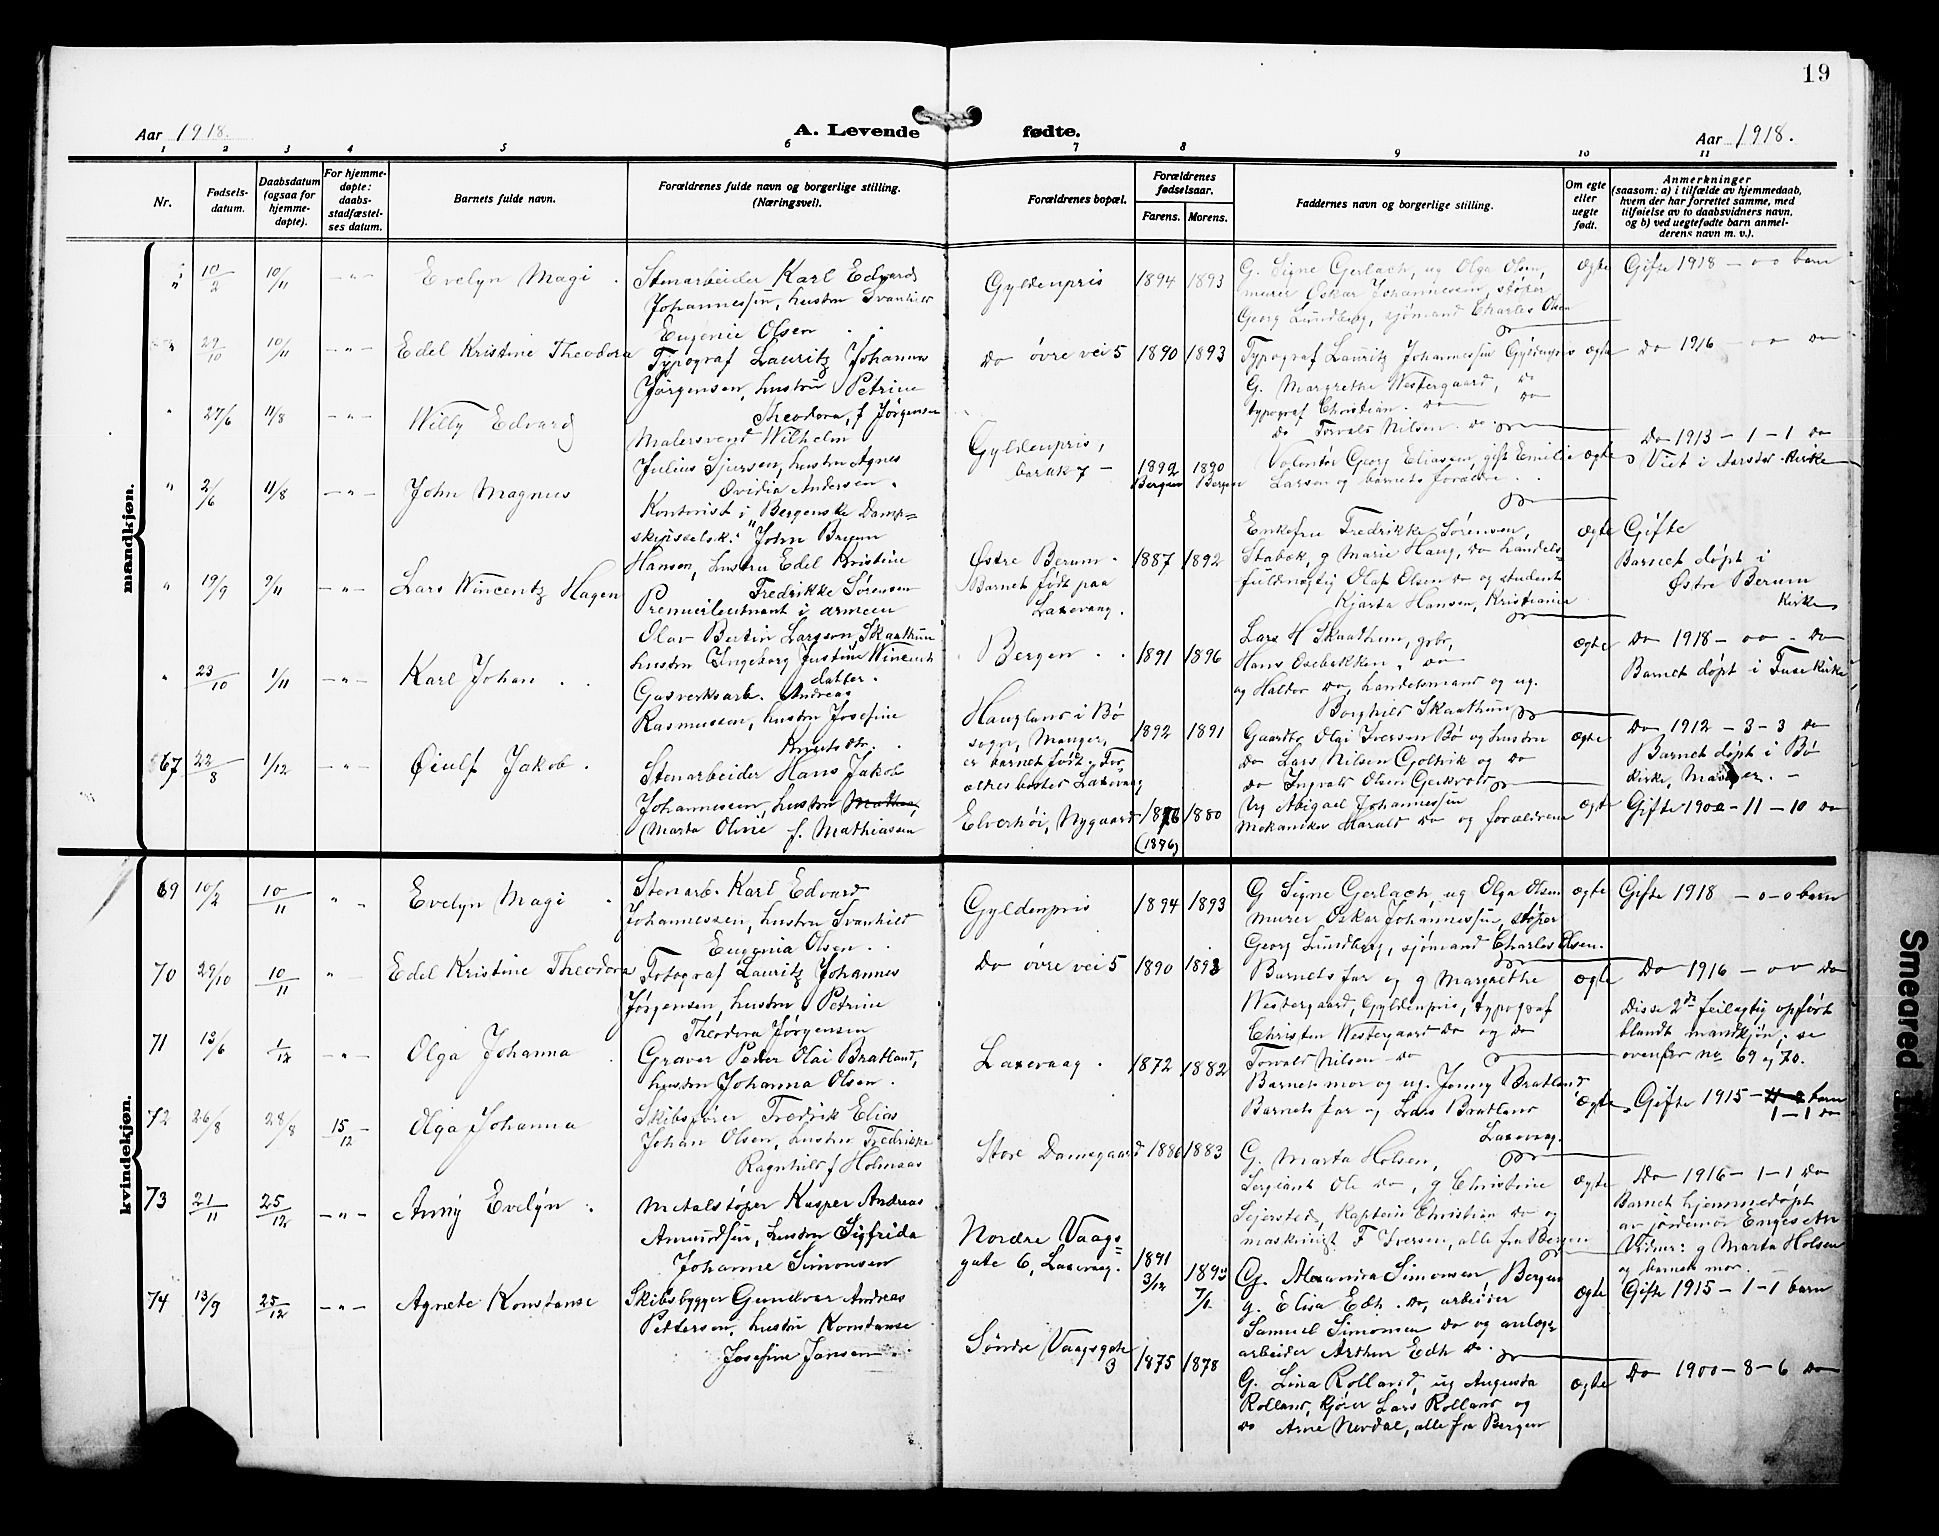 19
Aar 1918.
A. Levende fødte.
Aar 1918.
1 2 3 4 5 6 7 8 9 10 11
Nr.
Fødsels-
datum.
Daabsdatum
(ogsaa for
hjemme-
døpte).
For hjemme-
døpte:
daabs-
stadfæstel-
ses datum.
Barnets fulde navn.
Forældrenes fulde navn og borgerlige stilling.
(Næringsvei).
Forældrenes bopæl.
Forældrenes
fødselsaar.
Farens. Morens.
Faddernes navn og borgerlige stilling.
Om egte
eller
uegte
født.
Anmerkninger
(saasom: a) i tilfælde av hjemmedaab,
hvem der har forrettet samme, med
tilføielse av to daabsvidners navn,
og b) ved uegtefødte barn anmel-
derens navn m. v.).
mandkjøn.
10/2 10/11 -"- Evelyn Magi
Stenarbeider Karl Edvard
Johannessen, hustru Svanhild
Eugenie Olsen
Gyldenpris 1894 1893
G. Signe Gerlach, ug Olga Olsen,
murer Oskar Johannessen, støper
Georg Lundberg, sjømand Charles Olsen
ægte
Gifte 1918 - o o barn
29/10 10/11 -"- Edel Kristine Theodora
Typograf Lauritz Johannes
Jørgensen, hustru Petrine
Theodora, f Jørgensen
Do øvre vei 5 1890 1893
Typograf Lauritz Johannessen Gyldenpris
G. Margrethe Westergaard, Do
typograf Christian Do Do
Do Torvald Nilsen Do
ægte
Do 1916 - o o Do
" 27/6 11/8 -"- Willy Edvard
Malersvend Wilhelm
Julius Sjursen, hustru Agnes
Ovidia Andersen.
Gyldenpris,
barak 7 - 1892 1890
Bergen Bergen
Volontør Georg Eliasen, gift Emilie
Larsen og barnets forældre
ægte
Do 1913 - 1 - 1 Do
Viet i Aarstad Kirke
" 2/6 11/8 -"- John Magnus
Kontorist i Bergenske Damp=
skipsselsk. John Bruun
Hansen, hustru Edel Kristine
Fredrikke Sørensen
Østre Berum.
Barnet født paa
Laxevaag.
1887 1892
Enkefru Fredrikke Sørensen,
Stabæk, g Marie Haug, Do handels=
fuldmægtig Olaf Olsen Do og student
Kjarta Hansen, Kristiania
ægte
Gifte
Barnet døpt i
Østre Berum
Kirke
" 19/9 9/11 -"- Lars Wincentz Hagen
Premierleutnant i armeen
Olav Bertin Larsson Skaathun
hustru Ingeborg Justine Wincents
datter.
Bergen 1891 1896
Lars H Skaathun, grbr,
Hans Oxebekken, Do
og Haldor Do, handelsmand og ug.
Borghild Skaathun
ægte
Do 1918 - o o - Do
Barnet døpt i Fuse Kirke
" 23/10 1/11 -"- Karl Johan
Gasverksarb. Andreas
Rasmussen, hustru Josefine
Knutsdtr.
Haugland i Bø
sogn, Manger,
er barnet født. For
ældres bosted Laxevaag
1892 1891
Gaardbr Olai Iversen Bø og hustru
Do Lars Nilsen Goltvik og Do
Do Ingvald Olsen
ægte
Do 1912 - 3 - 3 Do
Barnet døpt i Bø
Kirke, Manger. -
67 22/8 1/12 -"- Øiulf Jakob.
Stenarbeider Hans Jakob
Johannessen, hustru
(Marta Olivie f. Mathiasen
Elverhøi, Nygaard 1876 1880
(1876)
Ug Abigael Johannessen
Mekaniker Harald Do og forældrene
ægte
Gifte 1900 - 11 - 10 Do
kvindekjøn.
69 10/2 10/11 " - Evelyn Magi
Stenarb. Karl Edvard
Johannessen, hustru Svanhild
Eugenia Olsen
Gyldenpris 1894 1893
G Signe Gerlach, ug Olga Olsen
murer Oskar Johannessen, støper
Georg Lundberg, sjømand Charles Olsen.
ægte
Gifte 1918 - o - o barn
70 29/10 10/11 " Edel Kristine Theodora
Fotograf Lauritz Johannes
Jørgensen, hustru Petrine
Theodora Jørgensen
Do øvre vei 5 1890 1893
Barnets far og g Margrethe
Westergaard, Gyldenpris, typograf
Christen Westergaard Do og Do
Torvald Nilsen Do
ægte
Do 1916 - o o Do
Disse 2de feilagtig opført
blandt mandkjøn; se
ovenfor no 69 og 70.
71 13/6 1/12 -"- Olga Johanna
Graver Peder Olai Bratland,
hustru Johanna Olsen.
Laxevaag. 1872 1882
Barnets mor og ug. Jenny Bratland
Barnets far og Lars Bratland
Laxevaag.
ægte
Gifte 1915 - barn
1 - 1 Do
72 26/8 28/8 15/12 Olga Johanna
Skibsfører Fredrik Elias
Johan Olsen, hustru Fredrikke
Ragnhild f Holmaas
Store Damsgaard 1886 1883
G. Marta Holsen,
Sergiant Ole Do, g Christine
Sejersted, Kaptein Christian Do og
maskinigt F Iversen, alle fra Bergen
ægte
Do 1916 - 1 - 1 Do
Barnet hjemmedøpt
av jordemor Engesetn
Vidner: g Marta Holsen
og barnets mor.
73 21/11 25/12 -"- Anny Evelyn
Metalstøper Kasper Andreas
Amundsen, hustru Sigfrida
Johanne Simonsen
Nordre Vaags=
gate 6, Laxevaag.
1891
3/12
G. Alexandra Simonsen, Bergen
g. Elisa Edh. Do, arbeider
Samuel Simonsen Do og anlægs=
arbeider Arthur Edh Do.
ægte
Gifte 1915 - 1 - 1 barn
74 13/9 25/12 -"- Agnete Konstanse
Skibsbygger Gundvar Andreas
Pettersen, hustru Konstanse
Josefine Jansen
Søndre Vaagsgate
3 1875 1878
G. Lina Rolland, ug Augusta
Rolland, kjører Lars Rolland og
Do Arne Nerdal, alle fra Bergen
ægte
Do 1900 - 8 - 6 Do
Smeared